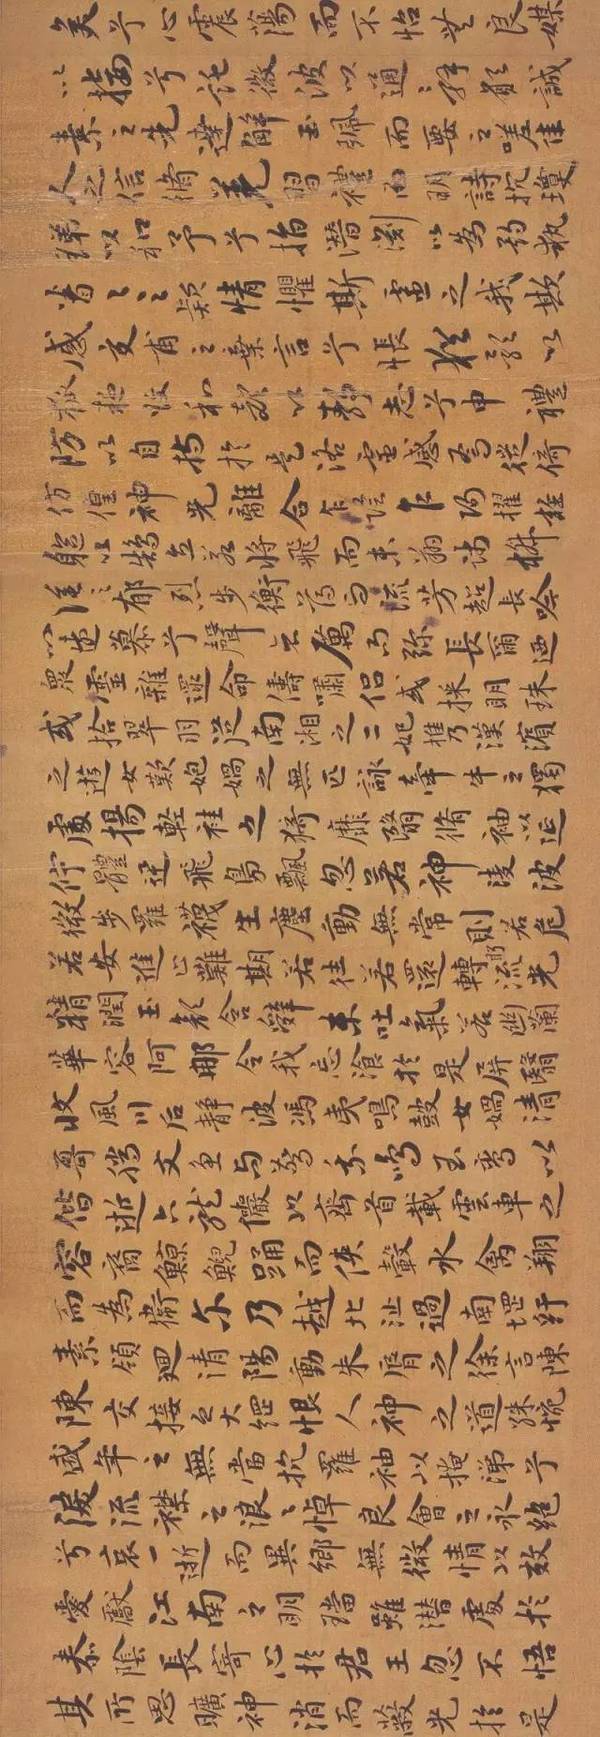 美兮心震蕩而不怡無良媒
以接兮託微波以通辭願誠
素之先達解玉珮而要之嗟佳
人之信脩羌習禮而明詩抗瓊
珶以和予兮指潛淵以為期執
眷〻之款情懼斯靈之我欺
感交甫之棄言兮悵猶豫以
狐疑收和顏以靜志兮申禮
防以自持於是洛靈感焉徙倚
仿偟神光離合乍陰乍陽擢輕
軀以鶴立若將飛而未翔踐椒
塗之郁烈步衡薄而流芳超長吟
以遠慕兮聲哀厲而彌長爾迺
眾靈雜遝命儔嘯侶或採明珠
或拾翠羽從南湘之二妃攜漢濱
之遊女歎匏媧之無匹詠牽牛之獨
處揚輕袿之猗靡翳脩袖以延
佇體迅飛鳧飄忽若神陵波
微步羅襪生塵動無常則若危
若安進止難期若往若還轉眄流光
精潤玉顏含辭未吐氣若幽蘭
華容阿那令我忘飡於是屏翳
收風川后靜波馮夷鳴鼓女媧清
哥騰文魚以警乘鳴玉鸞以
偕逝六龍儼以齊首載雲車之
容裔鯨鯢踊而俠轂水禽翔
而為衛尒乃越北沚過南岡紆
素領迴清陽動朱脣之徐言陳
陳交接之大綱恨人神之道殊
盛年之無當抗羅袖以掩涕兮
淚流襟之浪〻悼良會之永絕
兮哀一逝而異鄉無微情以效
愛獻江南之明璫雖潛處於
泰陰長寄心於君王忽不悟
其所思曠神消而蔽光於是